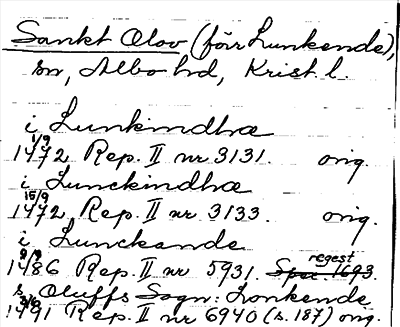 Sankt Olov (förr Lunkende),
sn, Albo hd, Krist. l.
i Lunkindhæ
1/9
1472 Rep. II nr 3131. orig.
i Lunckindhæ
15/9
1472 Rep. II nr 3133. orig.
i Lunckande
9/9 regest
1486 Rep. II nr 5931. Spec. 1693.
s. Oluffs Sogn: Lonkende
3/6
1491 Rep. II nr 6940 (s. 187) orig.